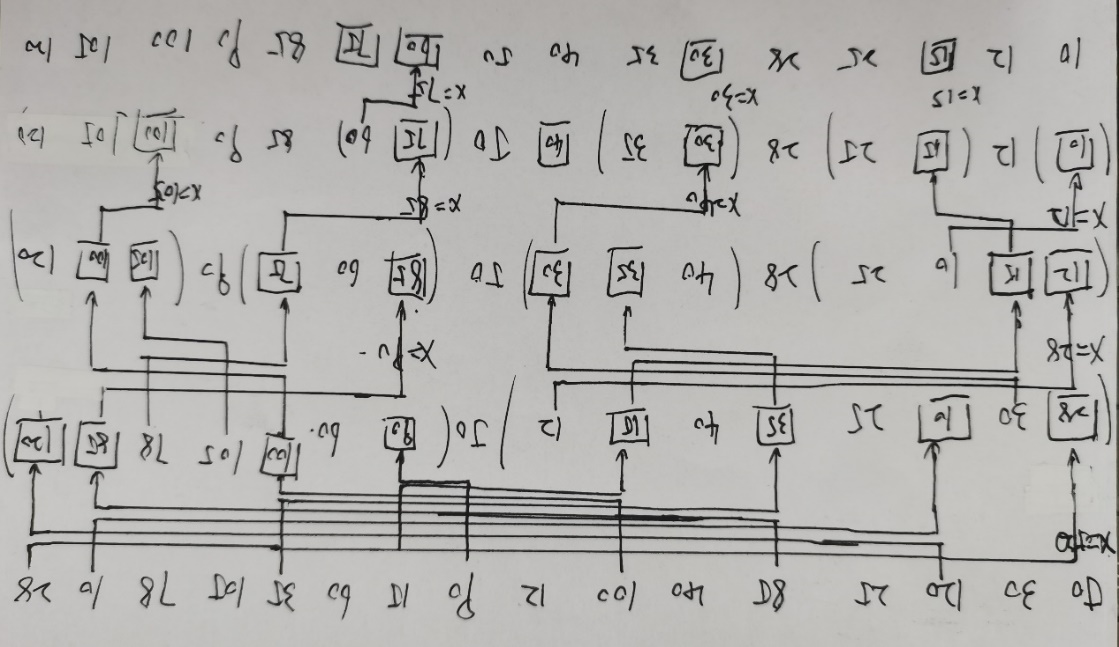 50 30 120 25 85 40 100 12 90 15 60 35 105 78 10 28
x=50
(28 30 10 25 35 40 15 12) 50 (90 60 100 105 78 85 120)
x=28 x=90
(12 15 10 25) 28 (40 35 30) 50 (85 60 75) 90 (105 100 120)
x=12 x=40 x=85 x=105
(10) 12 (15 25) 28 (30 35) 40 50 (75 60) 85 90 (100) 105 120
x=15 x=30 x=75
10 12 15 25 28 30 35 40 50 60 75 85 90 100 105 120